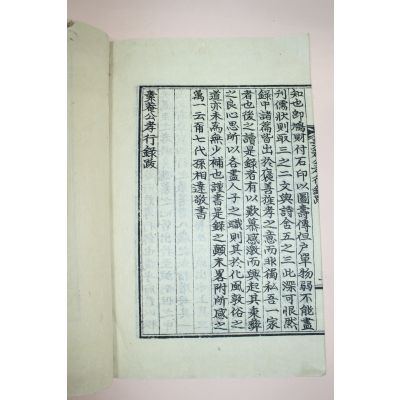 知也卽鳩財付石印以圖壽傳但戶單物弱不能盡
刊儒狀則取三之二文與詩舍五之三此深可恨然
錄中諸篇皆出於褒善旌孝之意而非獨私吾一家
者也後之讀是錄者有以歎慕感激而興起其秉彛
之良心思所以各盡人子之職則其於化風敦俗之
道亦未爲無少補也謹書是錄之顚末畧附所感之
萬一云爾七代孫相達敬書
素菴公孝行錄跋